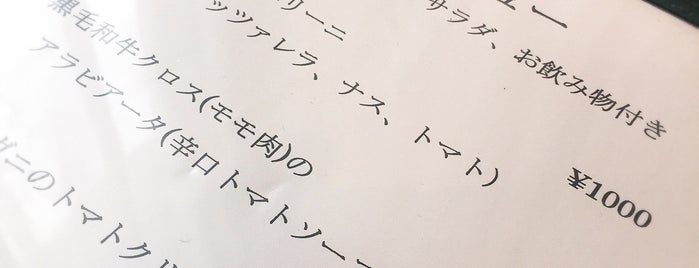 ュー
サラダ、お飲み物付き
¥1000
リーニ
ッツァレラ、ナス、トマト)
黒毛和牛クロス(モモ肉)の
アラビアータ(辛口トマトソー
ガニのトマトク